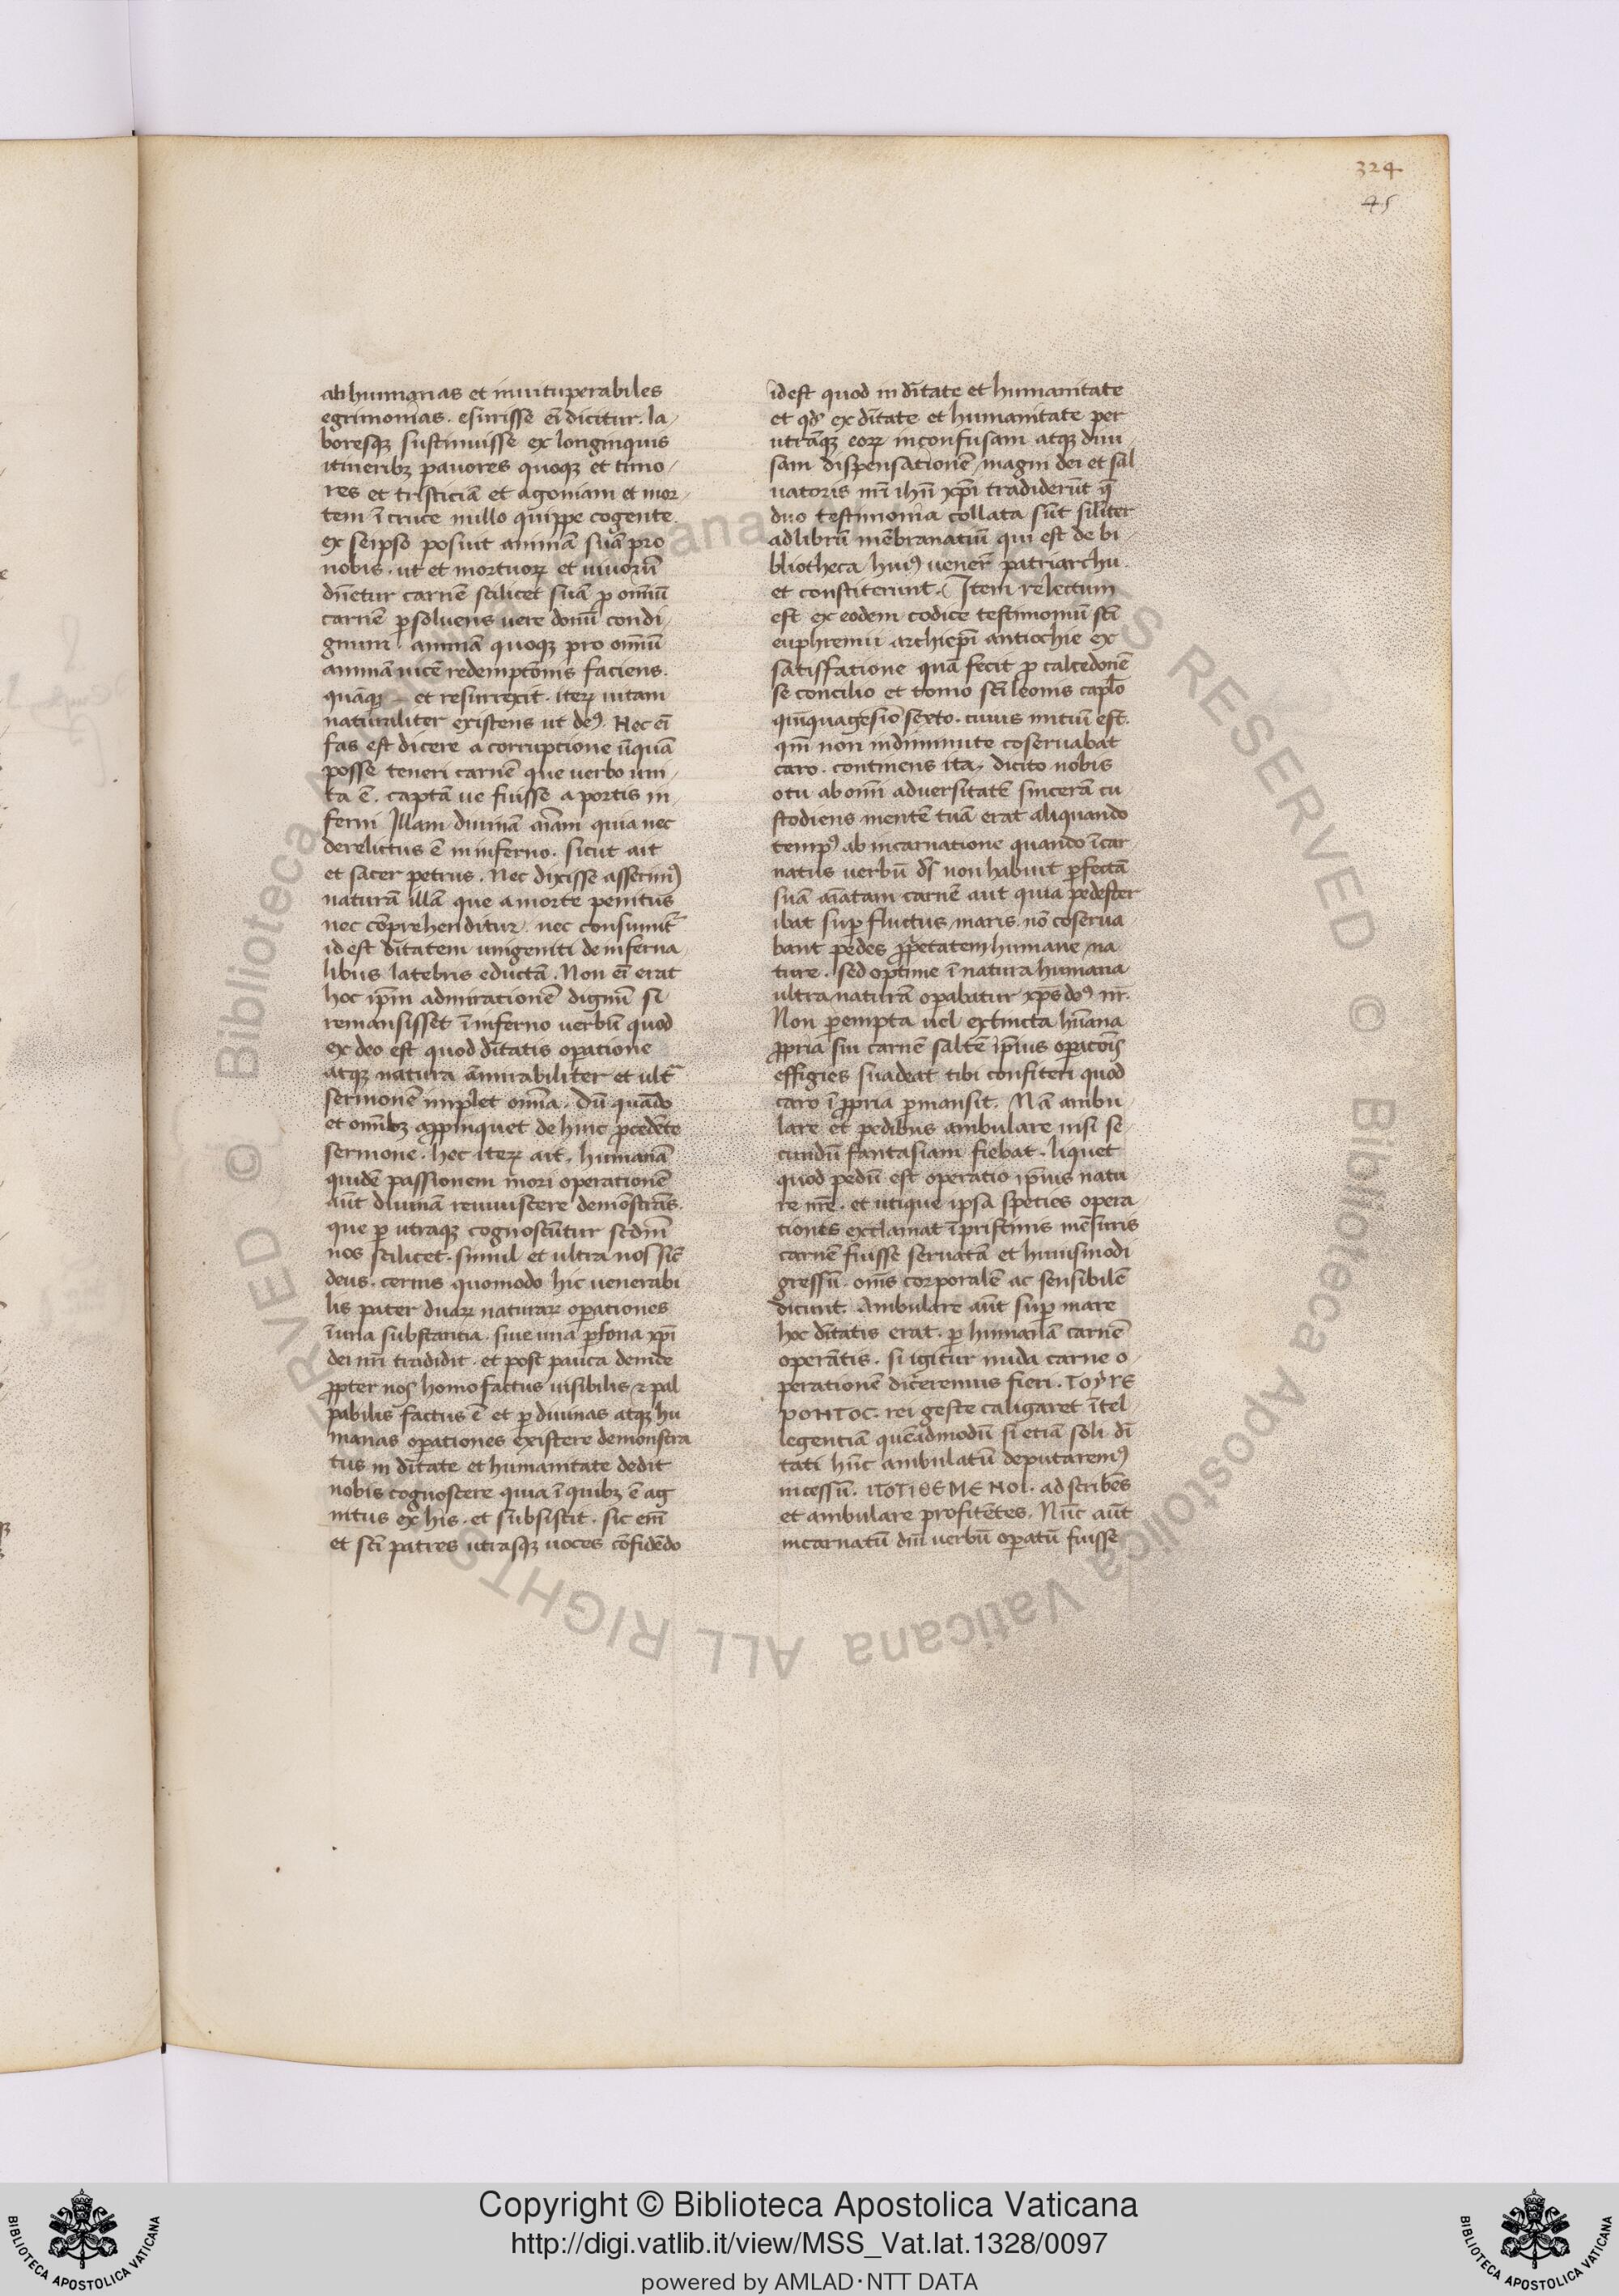 324
45
ab humanas et inuituperabiles
egrimonias. esurisse ei̅ dicitur. la-
boresqꝫ sustinuisse ex longinquis
itineribꝫ pauores quoqꝫ et timo-
res et tristiciā et agoniam et mor-
tem ī cruce nullo quippe cogente
ex seipso posuit animā suā pro
nobis. ut et mortuoꝝ et uiuorū
dn̄etur carnē scilicet suā ꝑ omniū
carnē ꝑsoluens uere donū condi-
gnum. animā quoqꝫ pro omniū
animā uicē redemptōnis faciens.
quāqꝫ et resurrexit. iteꝝ uitam
naturaliter existens ut deꝰ. Nec ei̅
fas est dicere a corruptione ūquā
posse teneri carnē que uerbo uni-
ta ē. captā ue fuisse a portis in-
ferni Illam diuinā aīam quia nec
derelictus ē in inferno. sicut ait
et sacer petrus. Nec dixisse asserimꝰ
naturā illā que a morte penitus
nec cōprehenditur. nec consumit᷑
id est dītatem unigeniti de inferna-
libus latebris eductā. Non ei̅ erat
hoc ip̄m admirationē dignū si
remansisset ī inferno uerbū quod
ex deo est quod dītatis oꝑatione
atqꝫ natura āmirabiliter et ult᷑
sermonē implet om̄ia. dū quādo
et omībꝫ aꝓpinquet de hinc ꝓcedēte
sermone. hec iteꝝ ait. humanā
quidē passionem mori operationē
aūt diuinā reuiuiscere demōstrās.
que ꝑ utraqꝫ cognoscūtur scdm̄
nos scilicet. simul et ultra nos sic̄
deus. cernis quomodo hic uenerabi
lis pater duaꝝ naturaꝝ oꝑationes
ī una substantia. siue una ꝑsona xp̄i
dei nr̄i tradidit. et post pauca deinde
ꝓpter nos homo factus uisibilis ⁊ pal
pabilis factus ē et ꝑ diuinas atqꝫ hu
manas oꝑationes existere demonstra
tus in dītate et humanitate dedit
nobis cognoscere quia ī quibꝫ ē ag
nitus ex his. et subsistit. sic enī
et sc̄i patres utrasqꝫ uoces cōfidēdo
id est quod in dītate et humanitate
et qd̄ ex dītate et humanitate per
utrāqꝫ eoꝝ inconfusam atqꝫ diui
sam dispensationē magni dei et sal
uatoris nr̄i ihū xp̄i tradiderūt q̄
duo testimonia collata sūt silīter
ad librū mēbranatiū qui est de bi-
bliotheca huiꝰ uener̄ patriarchu.
et constiterunt. Item relectum
est ex eodem codice testimoniū sc̄i
euphremii archiep̄i antiochie ex
satisfatione quā fecit ꝑ calcedonē
se concilio et tomo sc̄i leonis cap̄lo
quīquagesīo sexto. cuius initiū est.
qm̄ non indiminute cōseruabat
caro. continens ita dicito nobis
o tu ab omī adversitatē sincerā cu
stodiens mentē tuā erat aliquando
tempꝰ ab incarnatione quando īcar
natus uerbū ds̄ non habuit ꝑfectā
suā aīatam carnē aut quia pedester
ibat suꝑ fluctus maris. nō cōserua
bant pedes ꝓp̄etatem humane na
ture. sed optime ī natura humana
ultra naturā oꝑabatur xp̄s dꝰ nr̄.
Non ꝑempta uel extincta hūana
ꝓpria sui carnē saltē ip̄ius oꝑacōīs
effigies suadeat tibi confiteri quod
caro ī ꝓpria ꝑmansit. Nā ambu-
lare et pedibus ambulare nisi se
cundū fantasiam fiebat. liquet
quod pedū est operatio ip̄ius natu
re nr̄e. et utique ipsa species opera-
tiones exclamat ī pristinis mēsuris
carnē fuisse seruatā et huiusmodi
gressū. om̄s corporalē ac sensibilē
dicunt. Ambulare aūt suꝑ mare
hoc dītatis erat. ꝑ humanā carnē
operātis. si igitur nuda carne o-
perationē diceremus fieri. TOYΓE
PONTOC. rei geste caligaret ītel-
legentiā quēadmodū si etiā soli dī
tati hūc ambulatū deputaremꝰ
incessū. ΠOTIΘEMENOI. ad scribēs
et ambulare profitētes. Nūc aūt
incarnatū dī uerbū oꝑatū fuisse
Copyright © Biblioteca Apostolica Vaticana
http://digi.vatlib.it/view/MSS_Vat.lat.1328/0097
powered by AMLAD·NTT DATA
BIBLIOTECA APOSTOLICA VATICANA
BIBLIOTECA APOSTOLICA VATICANA